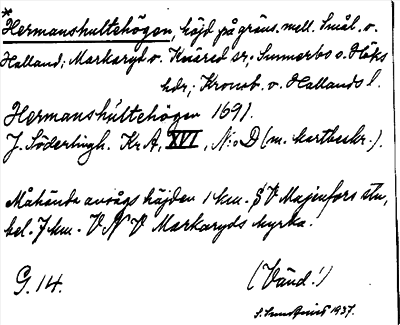 *
Hermanshultehögen, höjd på gräns. mell. Smål. o.
Halland; Markaryd o. Knäred sr, Sunnerbo o. Höks
hdr; Kronob. o. Hallands l.
Hermanshúltehögen 1691.
J. Söderlingh. Kr. A, XVI, N:o D (m. kartbeskr.).
Måhända avsågs höjden 1 km. S V Majenfors stn,
bel. 7 km. V N V Markaryds kyrka.
G. 14. (Vänd!)
1937.